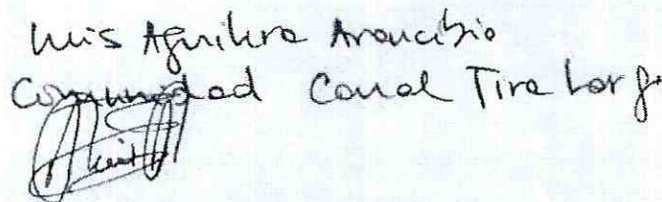 Luis Aguilera Arancibia
Comunidad Canal Tira Larga